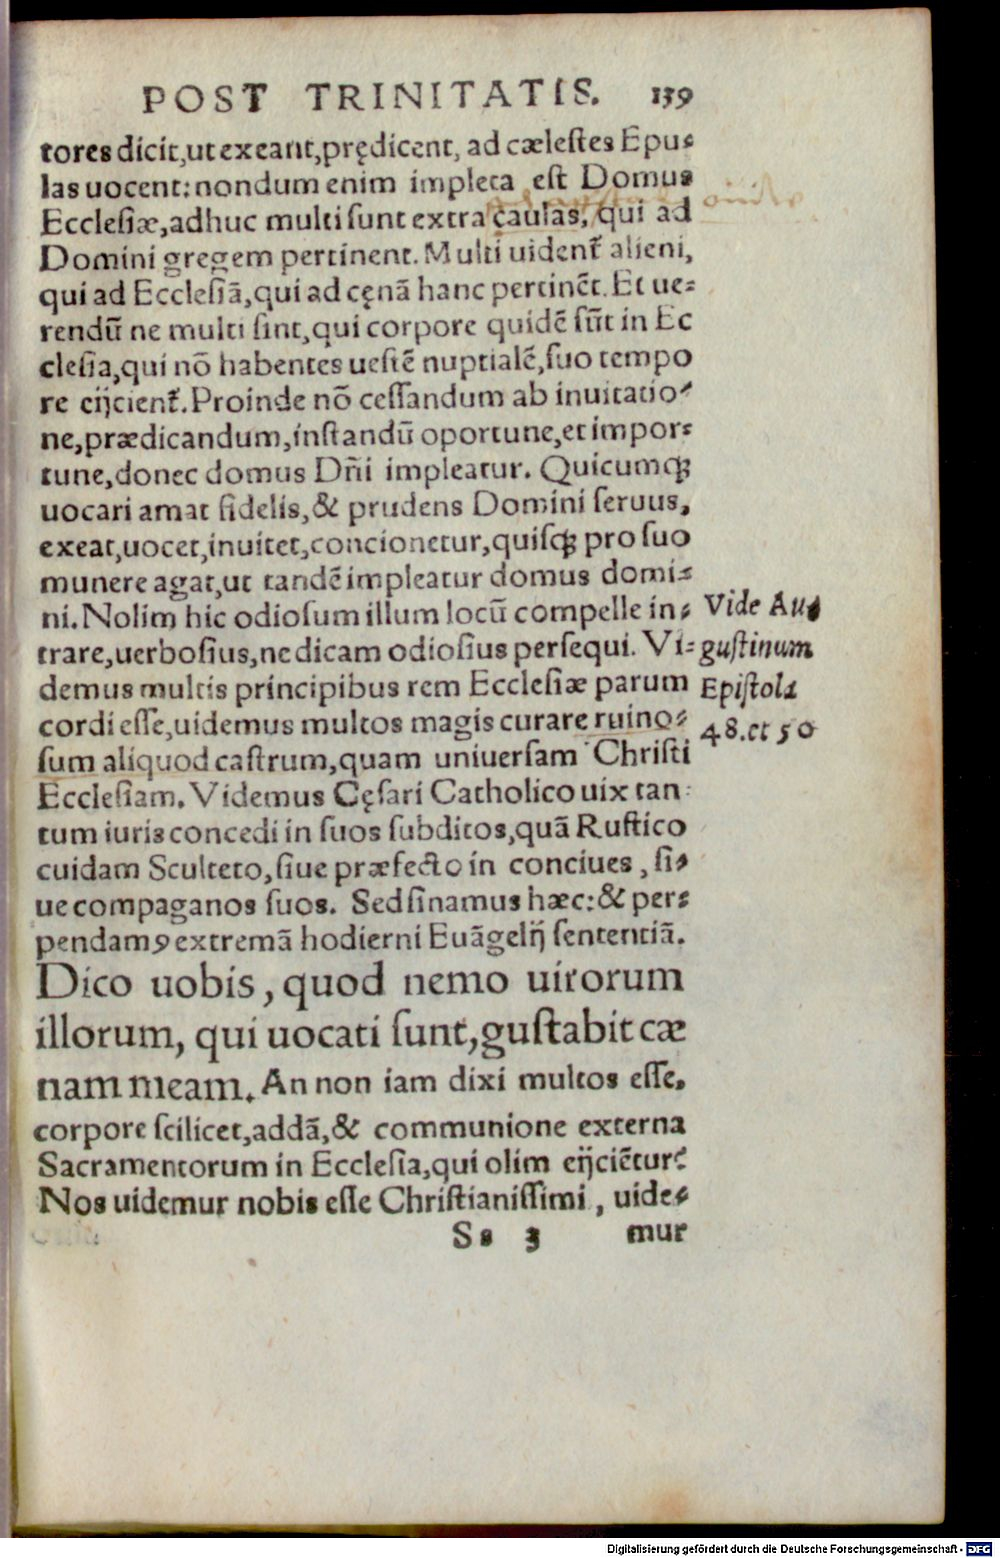 POST TRINITATIS. 159
tores dicit,ut exeant,prędicent, ad cælestes Epu⸗
las uocent: nondum enim impleta est Domus
Ecclesiæ,adhuc multi sunt extra caulas, qui ad
Domini gregem pertinent. Multi uident᷑ alieni,
qui ad Ecclesiā,qui ad cęnā hanc pertinēt. Et ue⸗
rendū ne multi sint,qui corpore quidē sūt in Ec
clesia,qui nō habentes uestē nuptialē,suo tempo
re eijcient᷑. Proinde nō cessandum ab inuitatio⸗
ne,prædicandum,instandū oportune,et impor⸗
tune,donec domus Dñi impleatur. Quicumqꝫ
uocari amat fidelis,& prudens Domini seruus,
exeat,uocet,inuitet,concionetur,quisqꝫ pro suo
munere agat,ut tandē impleatur domus domi⸗
ni. Nolim hic odiosum illum locū compelle in⸗
trare,uerbosius,ne dicam odiosius persequi. Vi⸗
demus multis principibus rem Ecclesiæ parum
cordi esse,uidemus multos magis curare ruino⸗
sum aliquod castrum,quam uniuersam Christi
Ecclesiam. Videmus Cęsari Catholico uix tan
tum iuris concedi in suos subditos,quā Rustico
cuidam Sculteto,siue præfecto in conciues, si⸗
ue compaganos suos. Sed sinamus hæc:& per⸗
pendamꝰ extremā hodierni Euāgelij sententiā.
Dico uobis, quod nemo uirorum
illorum, qui uocati sunt,gustabit cæ
nam meam. An non iam dixi multos esse,
corpore scilicet,addā,& communione externa
Sacramentorum in Ecclesia,qui olim eijciētur?
Nos uidemur nobis esse Christianissimi, uide⸗
Ss 3 mur
Vide Au⸗
gustinum
Epistola
48.et 50
Digitalisierung gefördert durch die Deutsche Forschungsgemeinschaft - DFG